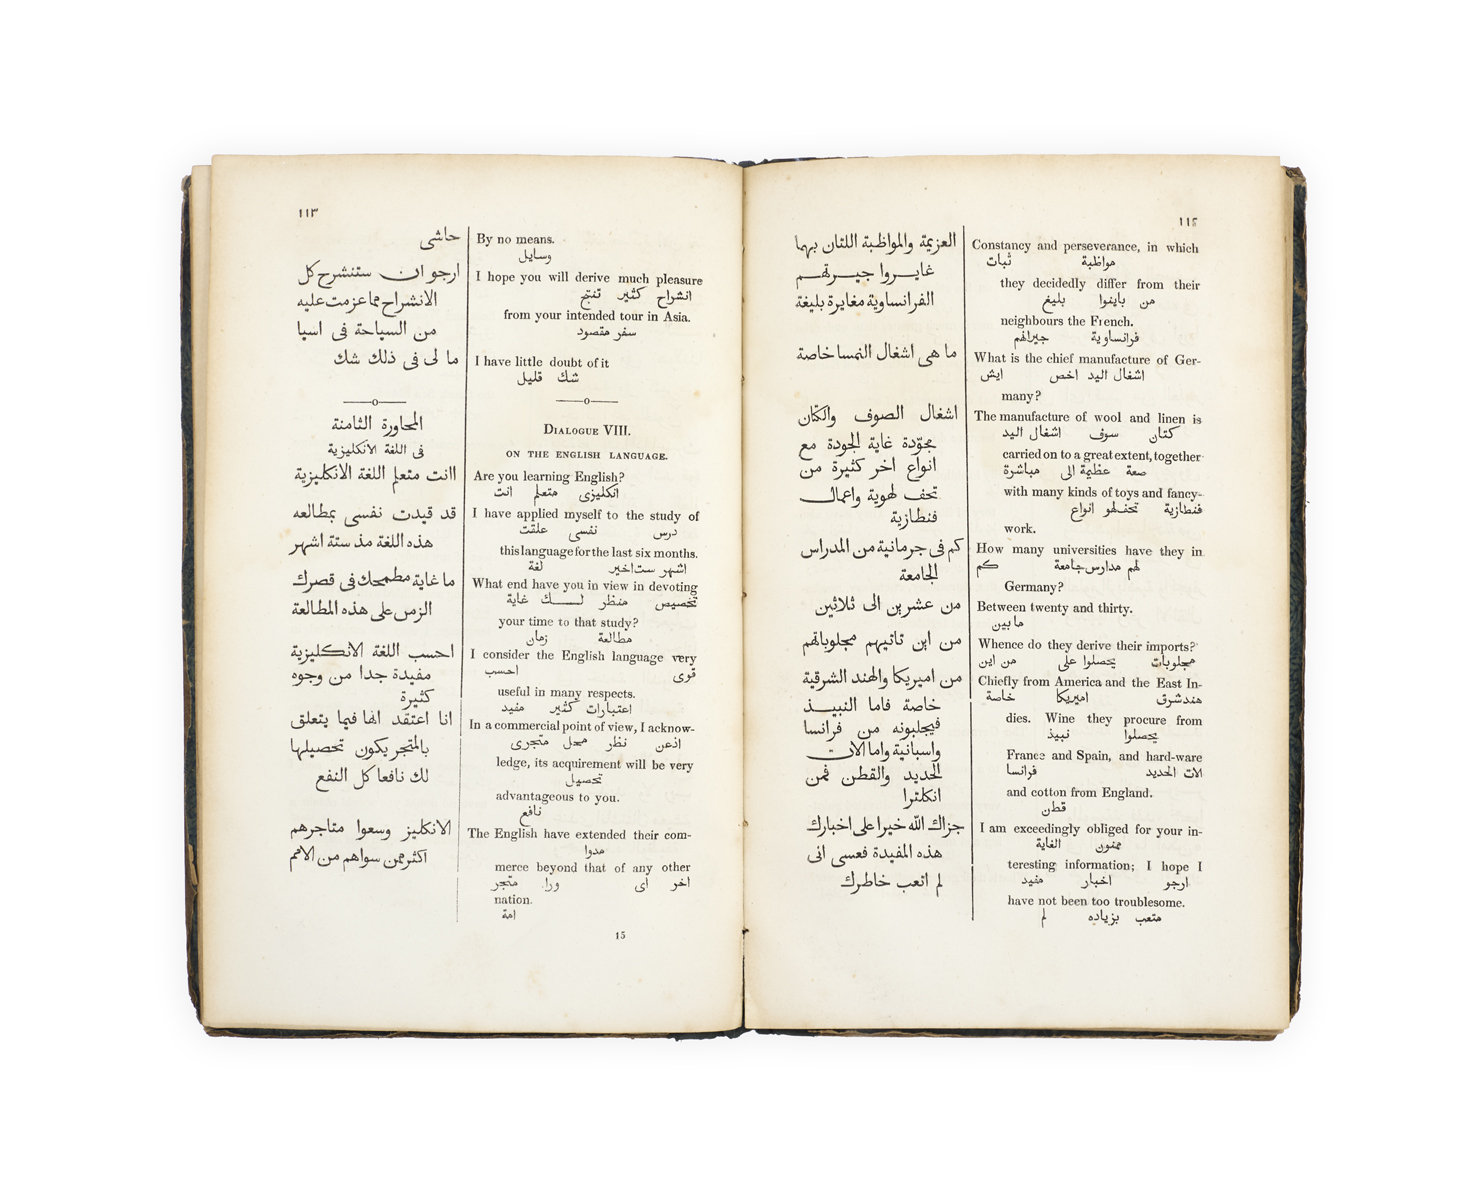 ١١٢
Constancy and perseverance, in which
مواظبة ثبات
they decidedly differ from their
من باينوا بليغ
neighbours the French.
فرانساوية جيرانهم
What is the chief manufacture of Ger-
اشغال اليد اخص ايش
many?
The manufacture of wool and linen is
كتان سوف اشغال اليد
carried on to a great extent, together
صعة عظيمة الى مباشرة
with many kinds of toys and fancy-
فنطازية تحف لهو انواع
work.
How many universities have they in
لهم مدارس جامعة كم
Germany?
Between twenty and thirty.
ما بين
Whence do they derive their imports?
مجلوبات يحصلوا على من اين
Chiefly from America and the East In-
هند شرق اميريكا خاصة
dies. Wine they procure from
يحصلوا نبيذ
France and Spain, and hard-ware
الات الحديد فرانسا
and cotton from England.
قطن
I am exceedingly obliged for your in-
ممنون الغاية
teresting information; I hope I
ارجو اخبار مفيد
have not been too troublesome.
متعب بزياده لم
العزيمة والمواظبة اللتان بهما
غايروا جيرتهم
الفرانساوية مغايرة بليغة
ما هى اشغال النمسا خاصة
اشغال الصوف والكتان
مجوّدة غاية الجودة مع
انواع اخر كثيرة من
تحف لهوية واعمال
فنطازية
كم فى جرمانية من المدارس
الجامعة
من عشرين الى ثلاثين
من اين تاتيهم مجلوباتهم
من اميريكا والهند الشرقية
خاصة فاما النبيذ
فيجلبونه من فرانسا
واسبانية واما الات
الحديد والقطن فمن
انكلترا
جزاك الله خيرا على اخبارك
هذه المفيدة فعسى انى
لم اتعب خاطرك
١١٣
By no means.
وسايل
I hope you will derive much pleasure
انشراح كثير تفتح
from your intended tour in Asia.
سفر مقصود
I have little doubt of it
شك قليل
DIALOGUE VIII.
ON THE ENGLISH LANGUAGE.
Are you learning English?
انكليزى متعلم انت
I have applied myself to the study of
درس نفسى علقت
this language for the last six months.
اشهر ست اخير لغة
What end have you in view in devoting
تخصيص منظر لك غاية
your time to that study?
مطالعة زمان
I consider the English language very
قوى احسب
useful in many respects.
اعتبارات كثير مفيد
In a commercial point of view, I acknow-
اذعن نظر محل متجرى
ledge, its acquirement will be very
تحصيل
advantageous to you.
نافع
The English have extended their com-
مدوا
merce beyond that of any other
اخر اى ورا متجر
nation.
امة
15
حاشى
ارجو ان ستنشرح كل
الانشراح مما عزمت عليه
من السياحة فى اسيا
ما لى فى ذلك شك
المحاورة الثامنة
فى اللغة الانكليزية
اانت متعلم اللغة الانكليزية
قد قيدت نفسى بمطالعه
هذه اللغة مذ ستة اشهر
ما غاية مطمحك فى قصرك
الزمن على هذه المطالعة
احسب اللغة الانكليزية
مفيدة جدا من وجوه
كثيرة
انا اعتقد انها فيما يتعلق
بالمتجر يكون تحصيلها
لك نافعا كل النفع
الانكليز وسعوا متاجرهم
اكثر ممن سواهم من الامم